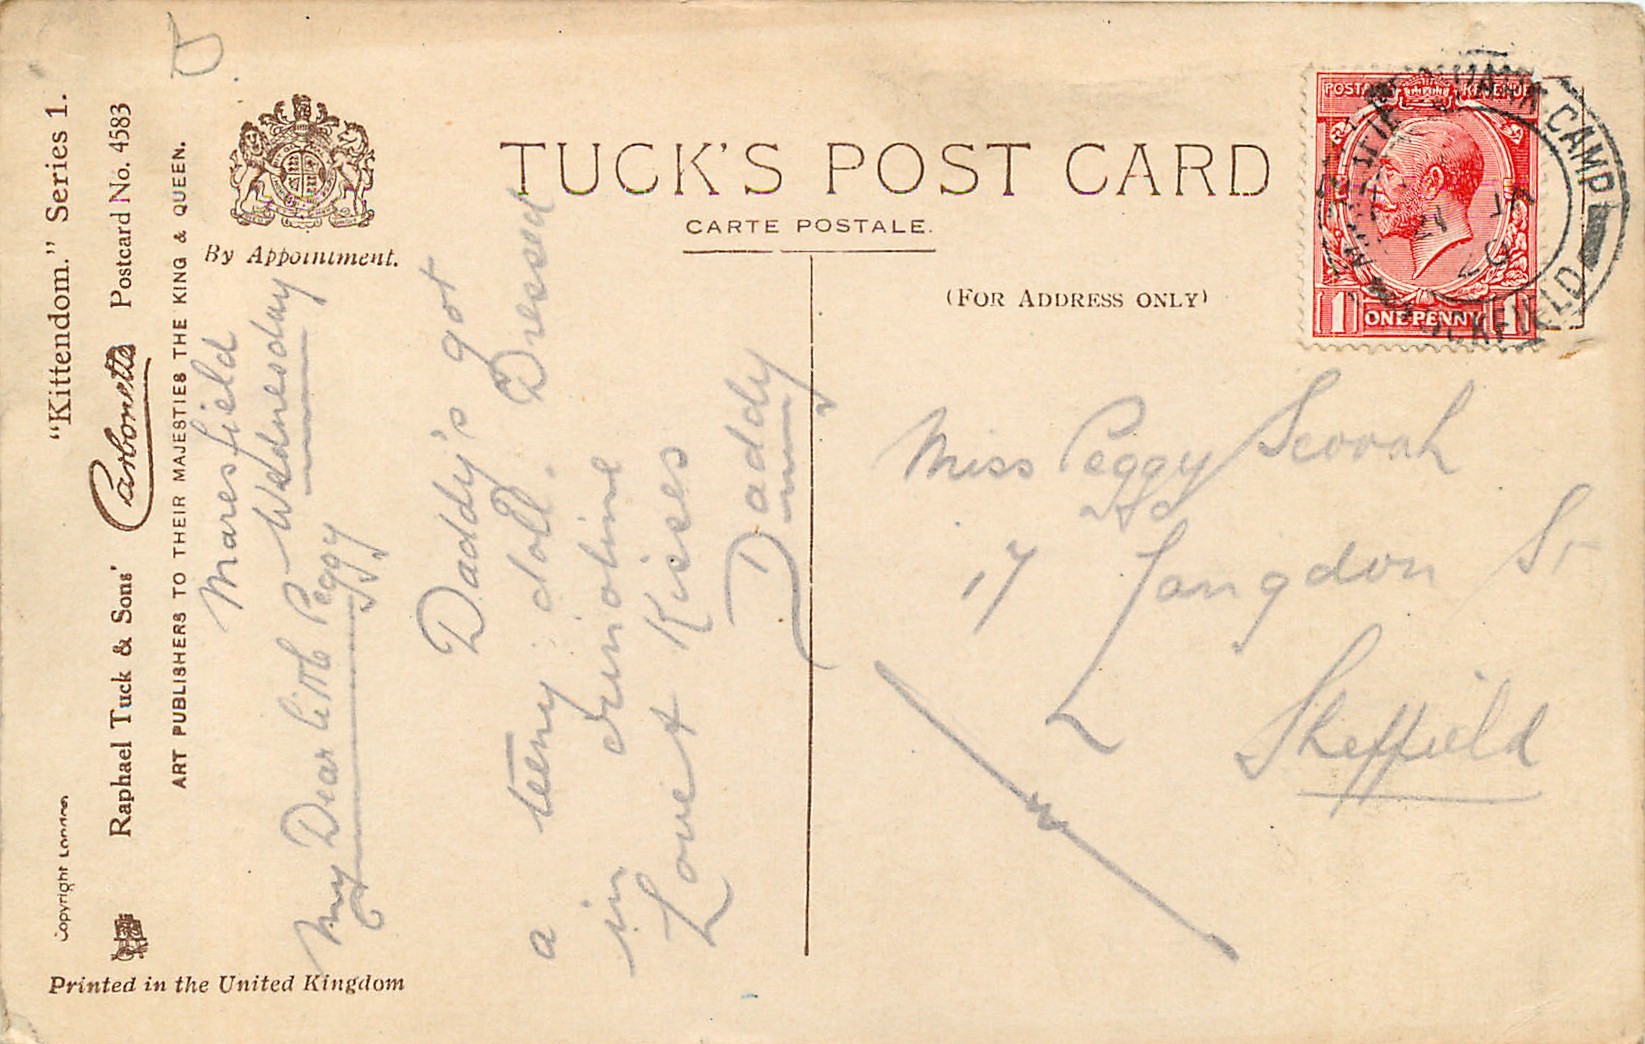 "Kittendom." Series 1.
Raphael Tuck & Sons' Carbonette Postcard No. 4583
ART PUBLISHERS TO THEIR MAJESTIES THE KING & QUEEN.
Copyright London
By Appointment.
Printed in the United Kingdom
TUCK'S POST CARD
CARTE POSTALE.
(FOR ADDRESS ONLY)
POSTAGE REVENUE
ONE PENNY
1 1
CAMP
UCKFIELD
20
Maresfield
Wednesday
My Dear little Peggy
Daddy's got
a teeny doll. Dressed
in
Love & Kisses
Daddy
Miss Peggy
17 Langdon St
Sheffield